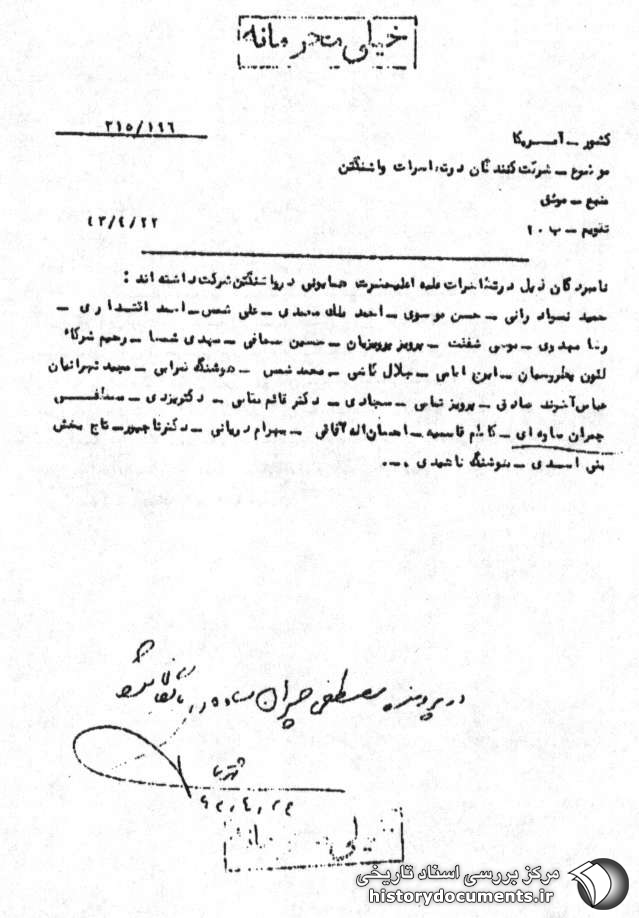 خیلی محرمانه
۲۱۵/۱۹۶
کشور ـ آمریکا
موضوع ـ شرکت کنندگان در تظاهرات واشنگتن
منبع ـ موثق
تقویم ـ ب ۲۰
۴۳/۴/۲۲
نامبردگان ذیل در تظاهرات علیه اعلیحضرت همایونی در واشنگتن شرکت داشته اند :
حمید ـ حسن موسوی ـ احمد ـ علی شمس ـ اسد اقتداری ـ
رضا مهدوی ـ موسی شفقت ـ پرویز پرویزیان ـ حسین ـ مهدی شمسا ـ رحیم شرکاء
لئون پطروسیان ـ امین امامی ـ جلال کاشی ـ محمد شمس ـ هوشنگ ـ مجید تهرانیان
عباس آخوند صادقی ـ پرویز ـ سجادی ـ دکتر ـ دکتر یزدی ـ مصطفی
چمران ساوه ای ـ کاظم قاسمیه ـ احسان اله آقائی ـ بهرام ـ دکتر تاجپور ـ تاج بخش
علی اسدی ـ هوشنگ ...
در پرونده مصطفی چمران ساوه
خیلی محرمانه
مرکز بررسی اسناد تاریخی
historydocuments.ir